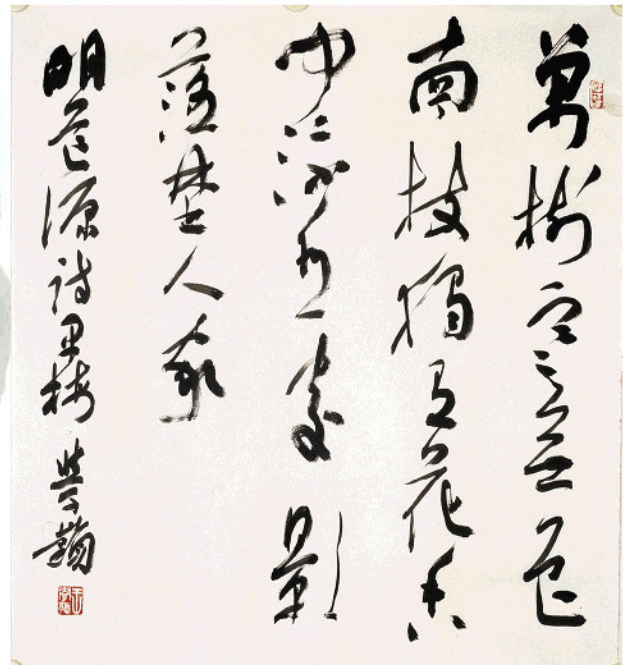 萬樹寒無色
南枝獨有花香
聞流水處影
落埜人家
明道源詩早梅